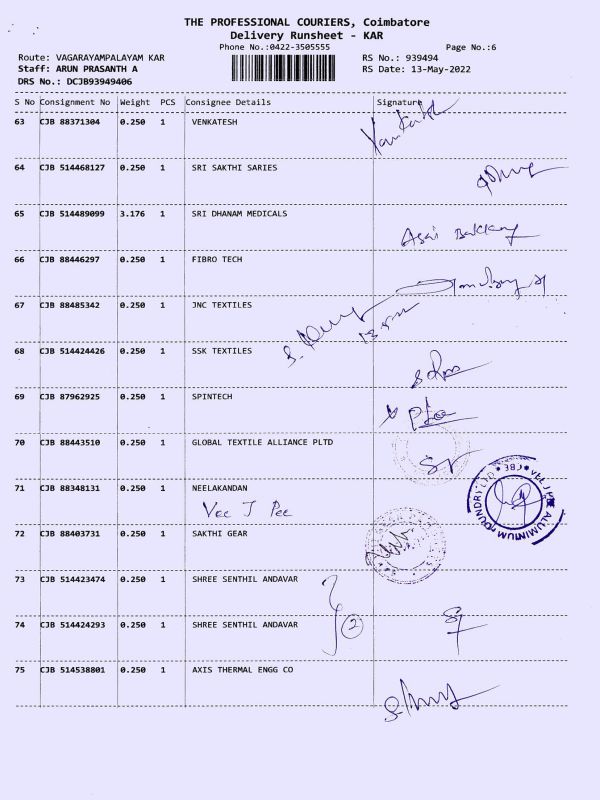 THE PROFESSIONAL COURIERS, Coimbatore
Delivery Runsheet - KAR
Phone No.:0422-3505555 Page No.:6
Route: VAGARAYAMPALAYAM KAR RS No.: 939494
Staff: ARUN PRASANTH A RS Date: 13-May-2022
DRS No.: DCJB93949406
S No Consignment No Weight PCS Consignee Details Signature
63 CJB 88371304 0.250 1 VENKATESH
64 CJB 514468127 0.250 1 SRI SAKTHI SARIES
65 CJB 514489099 3.176 1 SRI DHANAM MEDICALS
66 CJB 88446297 0.250 1 FIBRO TECH
67 CJB 88485342 0.250 1 JNC TEXTILES
68 CJB 514424426 0.250 1 SSK TEXTILES
69 CJB 87962925 0.250 1 SPINTECH
70 CJB 88443510 0.250 1 GLOBAL TEXTILE ALLIANCE PLTD
71 CJB 88348131 0.250 1 NEELAKANDAN
Vee J Pee
VEE JPEE ALUMINIUM FOUNDRY LTD CBE
72 CJB 88403731 0.250 1 SAKTHI GEAR
73 CJB 514423474 0.250 1 SHREE SENTHIL ANDAVAR
2
74 CJB 514424293 0.250 1 SHREE SENTHIL ANDAVAR
75 CJB 514538801 0.250 1 AXIS THERMAL ENGG CO